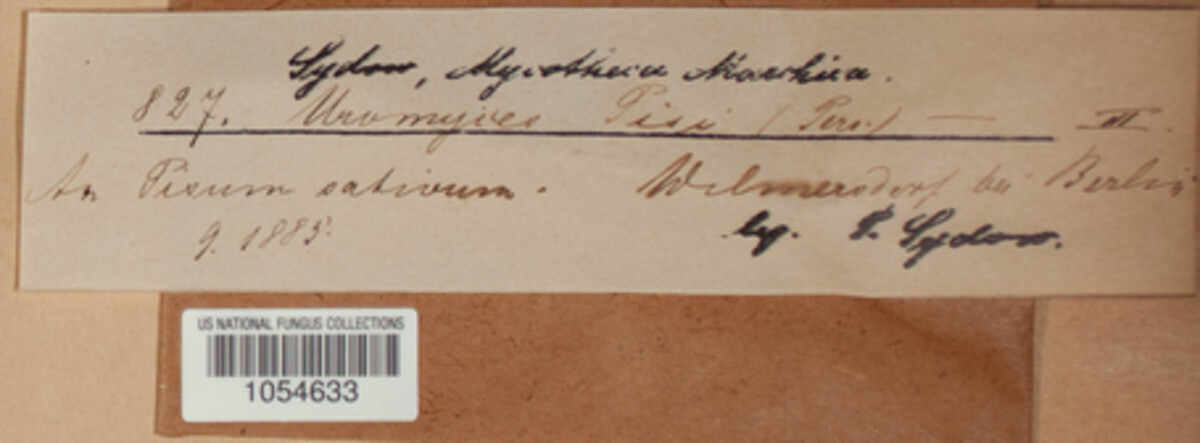 Sydow, Mycotheca Marchica.
827. Uromyces Pisi (Pers.) — III.
An Pisum sativum. Wilmersdorf bei Berlin
9. 1885. lg. P. Sydow.
US NATIONAL FUNGUS COLLECTIONS
1054633